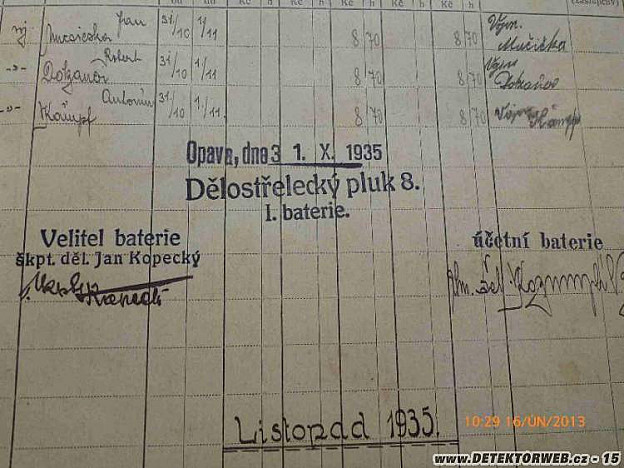 Kč h Kč h Kč h Kč h
nj. Jan 31/10 1/11 8 70 8 70 Vojn.
Mučička
Robert 31/10 1/11 8 70 8 70 Vojn
Antonín 31/10 1/11 8 70 8 70
Kämpf Kämpf
Opava, dne 3 1. X. 1935
Dělostřelecký pluk 8.
I. baterie.
Velitel baterie
škpt. děl. Jan Kopecký
účetní baterie
Kopecký
Listopad 1935.
10:29 16/ÚN/2013
www.DETEKTORWEB.cz - 15